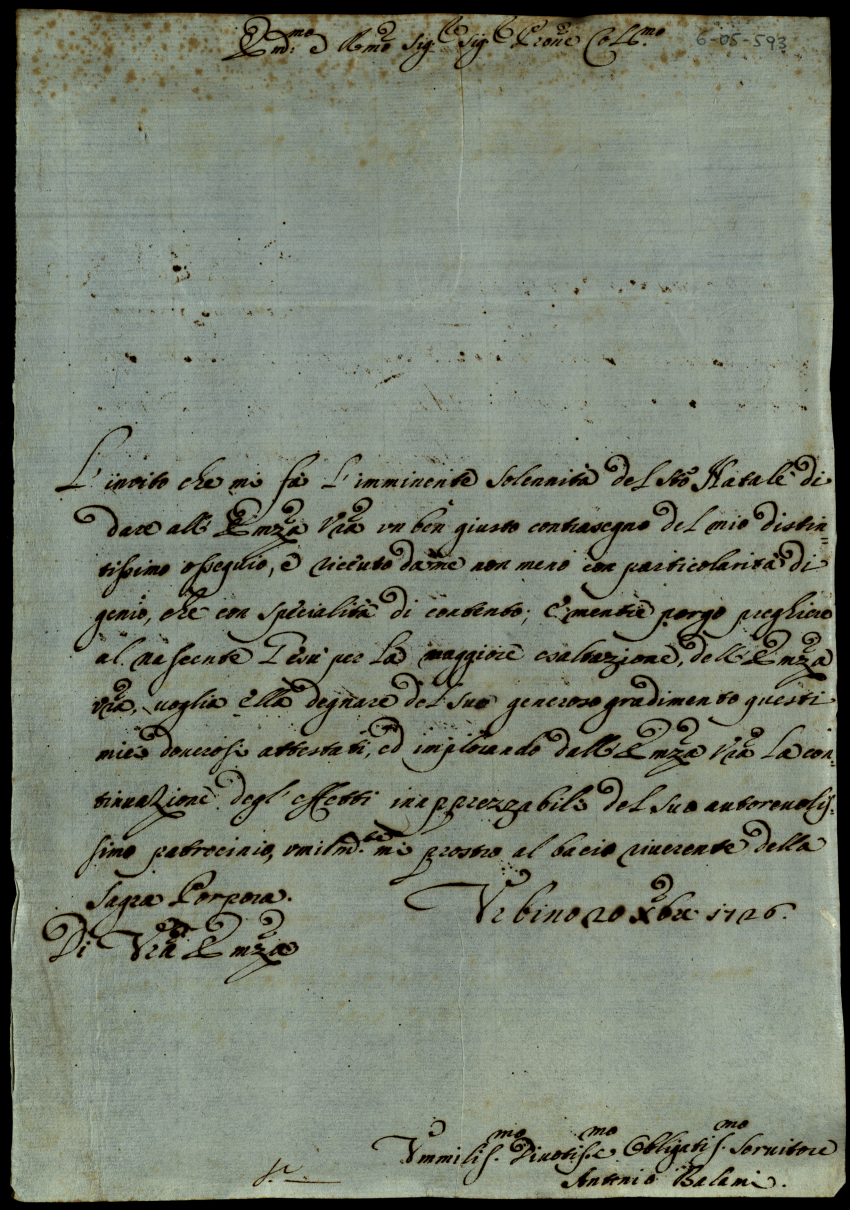 Em.mo e Rmo Sig.r Sig.r Prone Col.mo
6-05-593
L'invito che mi fà L'imminente Solennità del Sto Natale di
dare all' Emza Vra vn ben giusto contrasegno del mio distin=
tissimo osseguio, è riceuto da me non meno con particolarità di
genio, che con specialità di contento; e mentre porgo preghiere
al nascente Iesù per La maggiore esaltazione, dell' Emza
vra, voglia ella degnare del suo generoso gradimento questi
miei doverosi attestati, ed implorando dall' Emza Vra La con=
tinuazione degl' effetti inapprezzabili del suo autoreuolis=
simo patrocinio, vmilm.te mi prostro al bacio riuerente della
Sagra Porpora.
Vrbino 20 Xbre 1726.
Di Vra Emza
Vmmilis.mo Diuotis.mo e Obligatis.mo Seruitore
Antonio Balani.